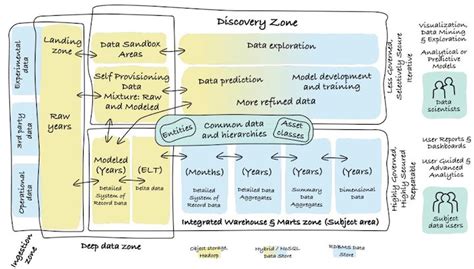 Discovery Zone
Experimental
data
3rd party
data
Operational
data
Ingestion
zone
Landing
zone
Raw
years
Data Sandbox
Areas
Self Provisioning
Data
Mixture: Raw
and Modeled
Data exploration
Data prediction
Model development
and training
More refined data
Entities
Common data
and hierarchies
Asset
classes
Modeled
(Years)
Detailed
System of
Record Data
(ELT)
Delta data
(Months)
Detailed
System of
Record Data
(Years)
Detailed Data
Aggregates
(Years)
Summary Data
Aggregates
(Years)
Dimensional
Data
Integrated Warehouse & Marts zone (Subject area)
Deep data zone
Object storage,
Hadoop
Hybrid / NoSQL
Data Store
RDBMS Data
Store
Less Governed,
Selectively Secure
Iterative
Highly Governed,
Highly Secured
Repeatable
Visualization,
Data Mining &
Exploration
Analytical or
Predictive
Models
Data
scientists
User Reports &
Dashboards
User Guided &
Advanced
Analytics
Subject
data users